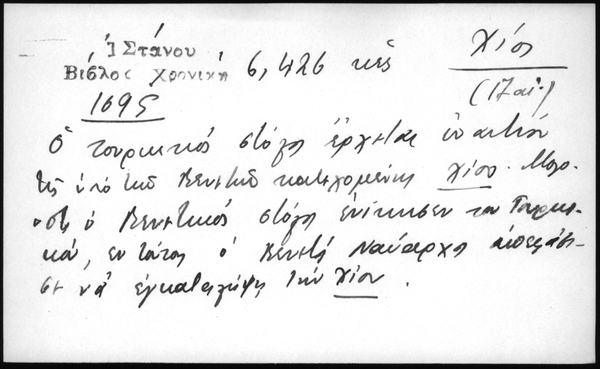 Ἰ Στάνου
Βίβλος Χρονικὴ 6, 426 κἑξ
Χίος
(17 αἰ.)
1695
Ὁ τουρκικός στόλος ἔρχεται ἐναντίον
τῆς ὑπό τῶν Βενετῶν κατεχομένης Χίου. Μολο-
νότι ὁ Βενετικός στόλος ἐνίκησεν τον Τουρκι-
κό, εν τούτοις ὁ Βενετός Ναύαρχος ἀπεφάσι-
σε νά ἐγκαταλείψῃ τήν Χίον.